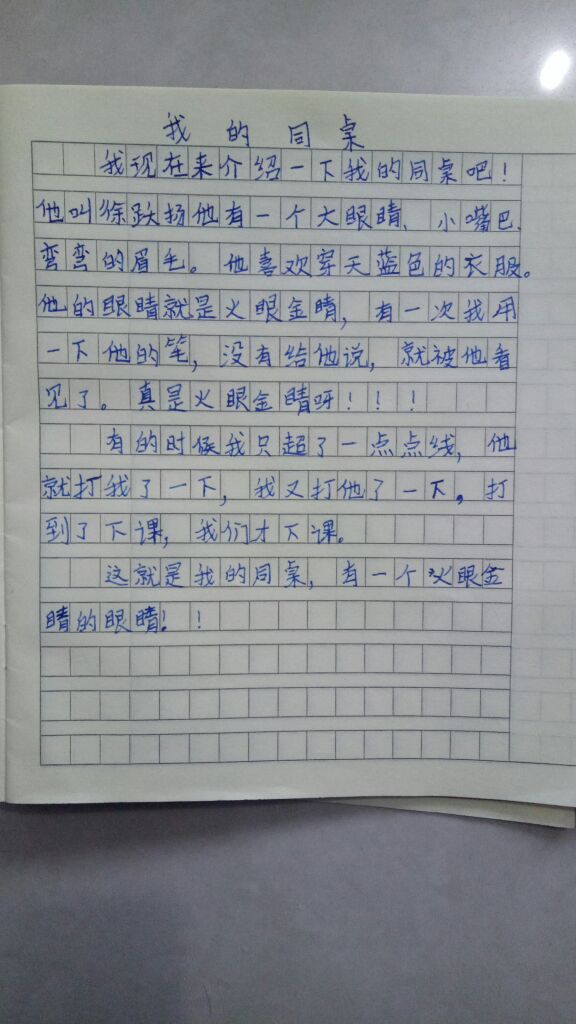 我的同桌
我现在来介绍一下我的同桌吧！
他叫徐跃扬他有一个大眼睛、小嘴巴、
弯弯的眉毛。他喜欢穿天蓝色的衣服。
他的眼睛就是火眼金睛，有一次我用
一下他的笔，没有给他说，就被他看
见了。真是火眼金睛呀！！！
有的时候我只超了一点点线，他
就打我了一下，我又打他了一下，打
到了下课，我们才下课。
这就是我的同桌，有一个火眼金
睛的眼睛！！